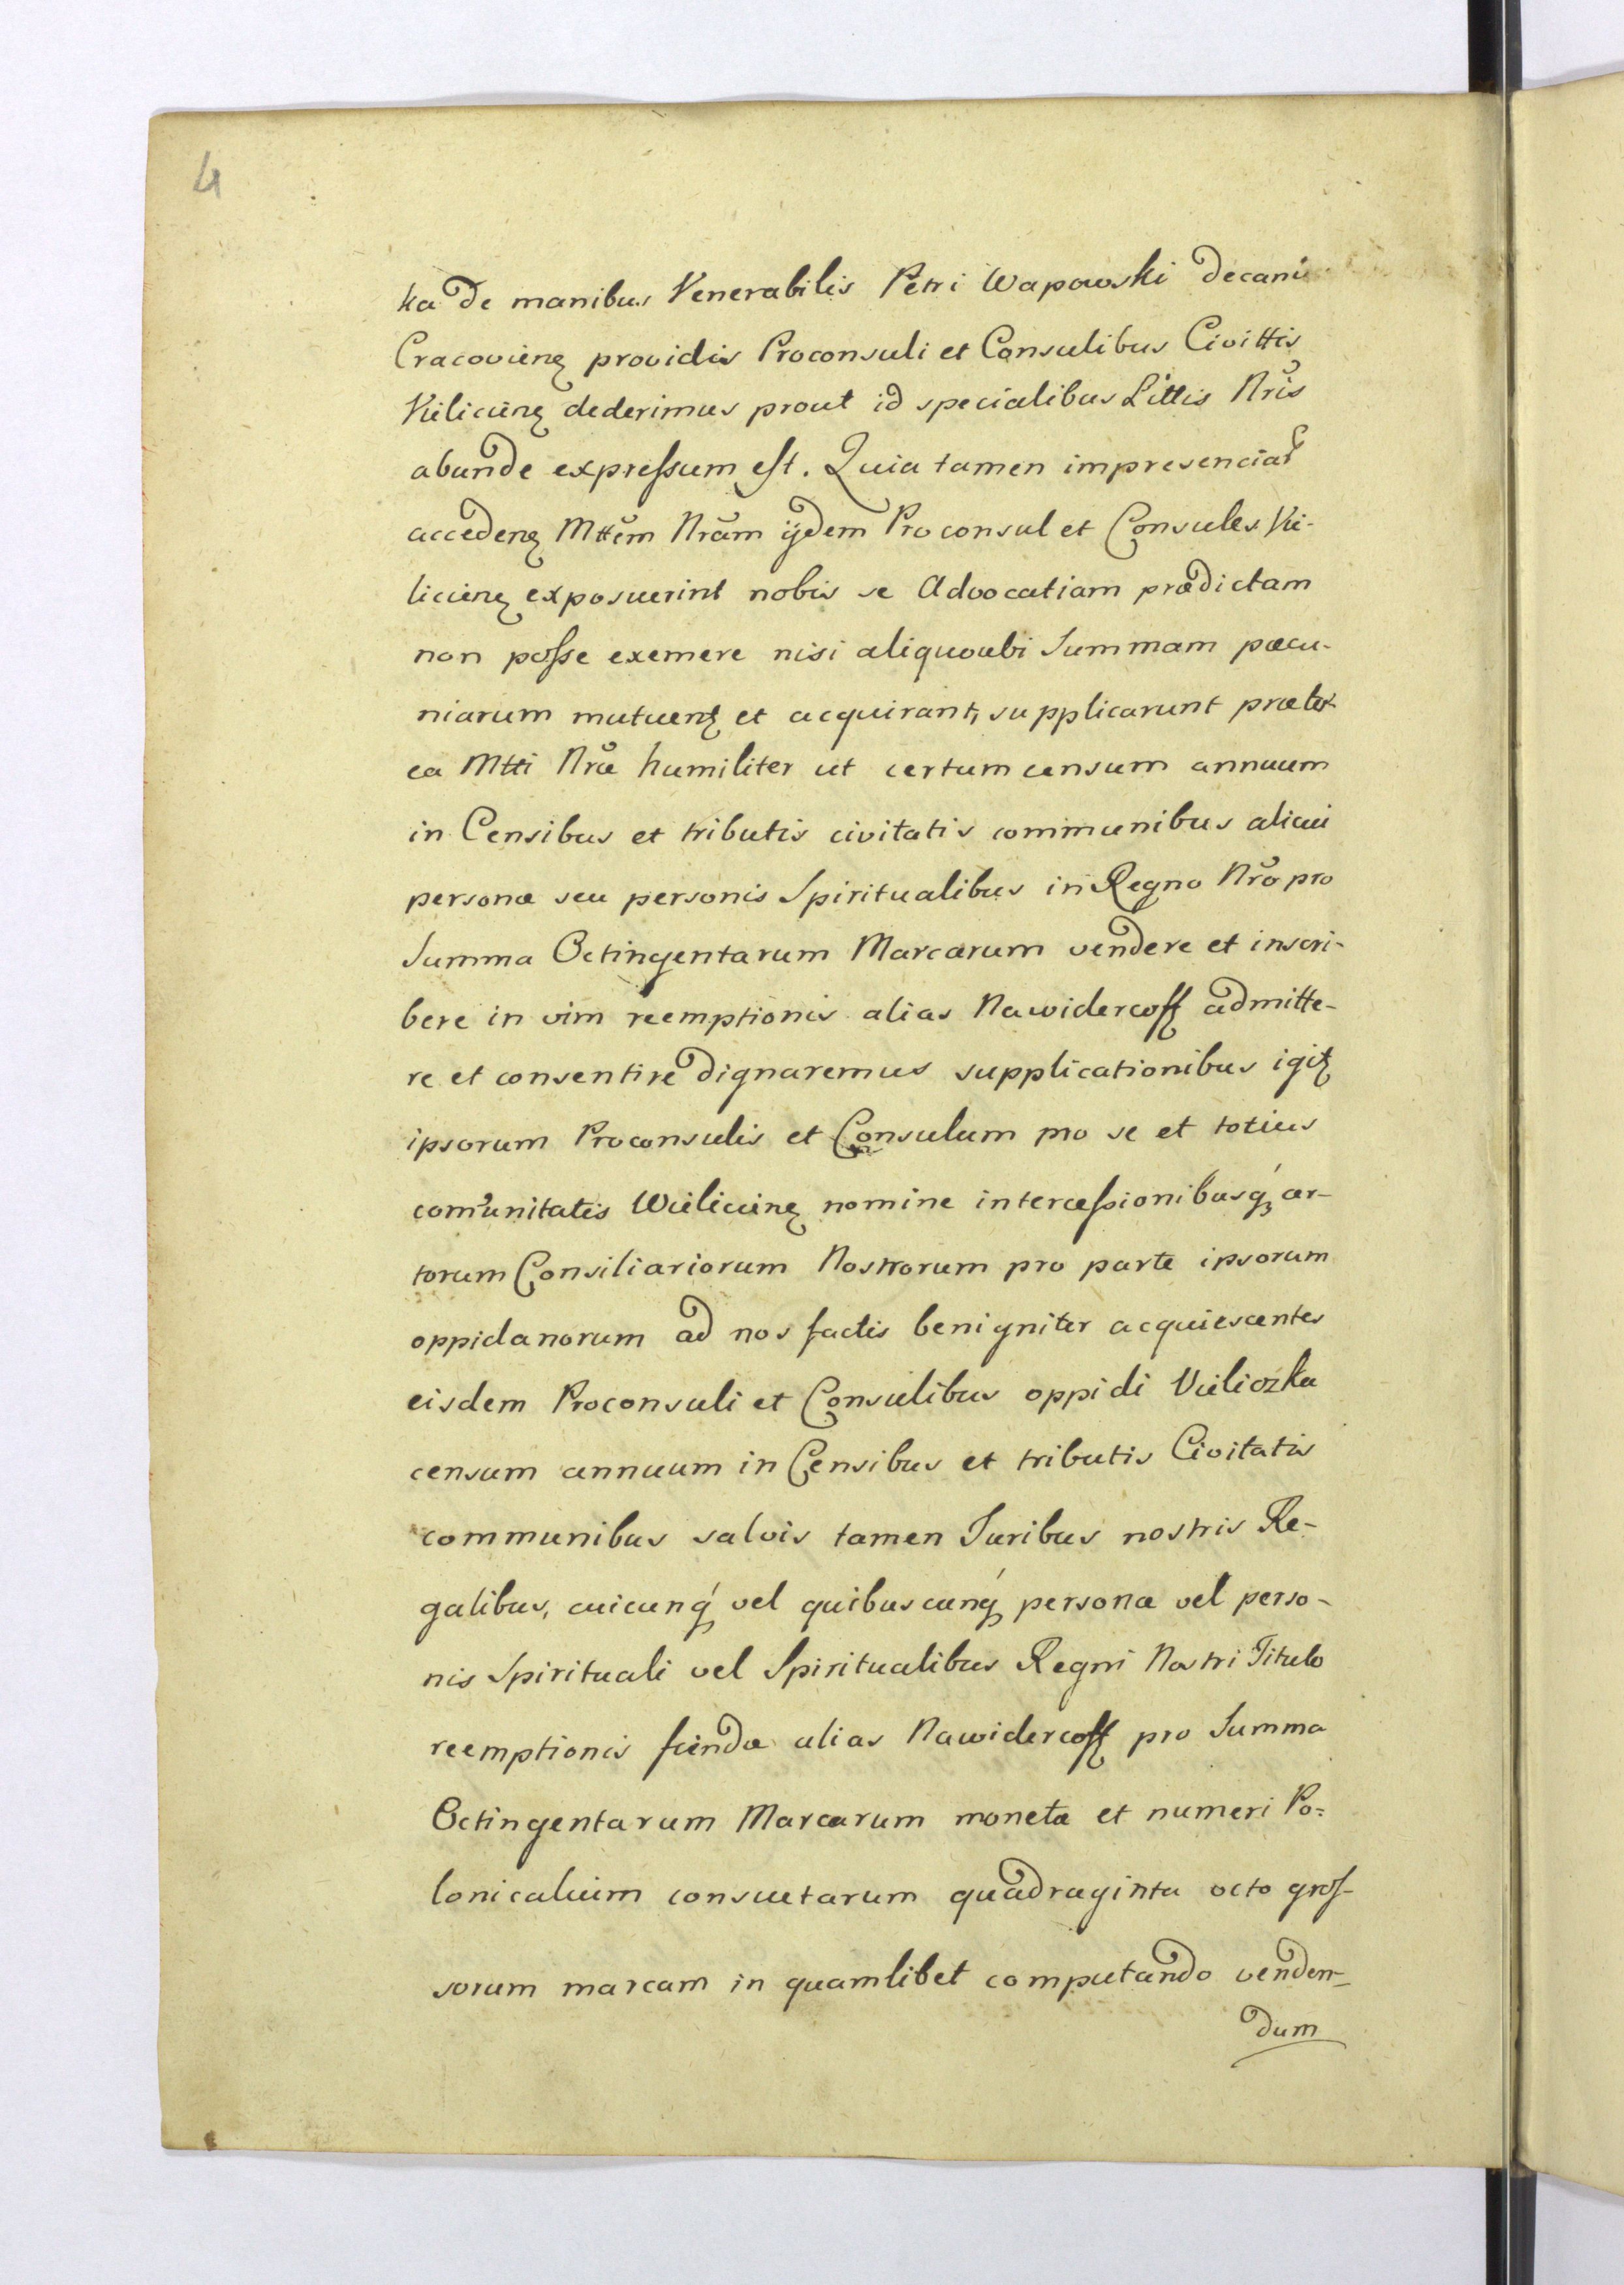 4
ka de manibus Venerabilis Petri Wapowski decani
Cracovienꝫ providis Proconsuli et Consulibus Civittis
Vielicienꝫ dederimus prout id specialibus Littis Nris
abunde expressum est. Quia tamen impresenciar
accedenꝫ Mttem Nram ijdem Proconsul et Consules Vie-
licienꝫ exposuerint nobis se Advocatiam prædictam
non posse exemere nisi aliquoubi Summam pæcu-
niarum mutuentꝫ et acquirant, supplicarunt præter
ea Mtti Nræ humiliter ut certum censum annuum
in Censibus et tributis civitatis communibus alicui
personæ seu personis Spiritualibus in Regno Nro pro
Summa Octingentarum Marcarum vendere et inscri-
bere in vim reemptionis alias Nawidercoff admitte-
re et consentire dignaremus supplicationibus igitꝫ
ipsorum Proconsulis et Consulum pro se et totius
comunitatis Wielicienꝫ nomine intercessionibusqꝫ cer-
torum Consiliariorum Nostrorum pro parte ipsorum
oppidanorum ad nos factis benigniter acquiescentes
eisdem Proconsuli et Consulibus oppidi Vieliczka
censum annuum in Censibus et tributis Civitatis
communibus salvis tamen Juribus nostris Re-
galibus, cuicunqꝫ vel quibuscunqꝫ personæ vel perso-
nis Spirituali vel Spiritualibus Regni Nostri Titulo
reemptionis fiendæ alias Nawidercoff pro Summa
Octingentarum Marcarum monetæ et numeri Po-
lonicalium consuetarum quadraginta octo gros-
sorum marcam in quamlibet computando venden-
dum